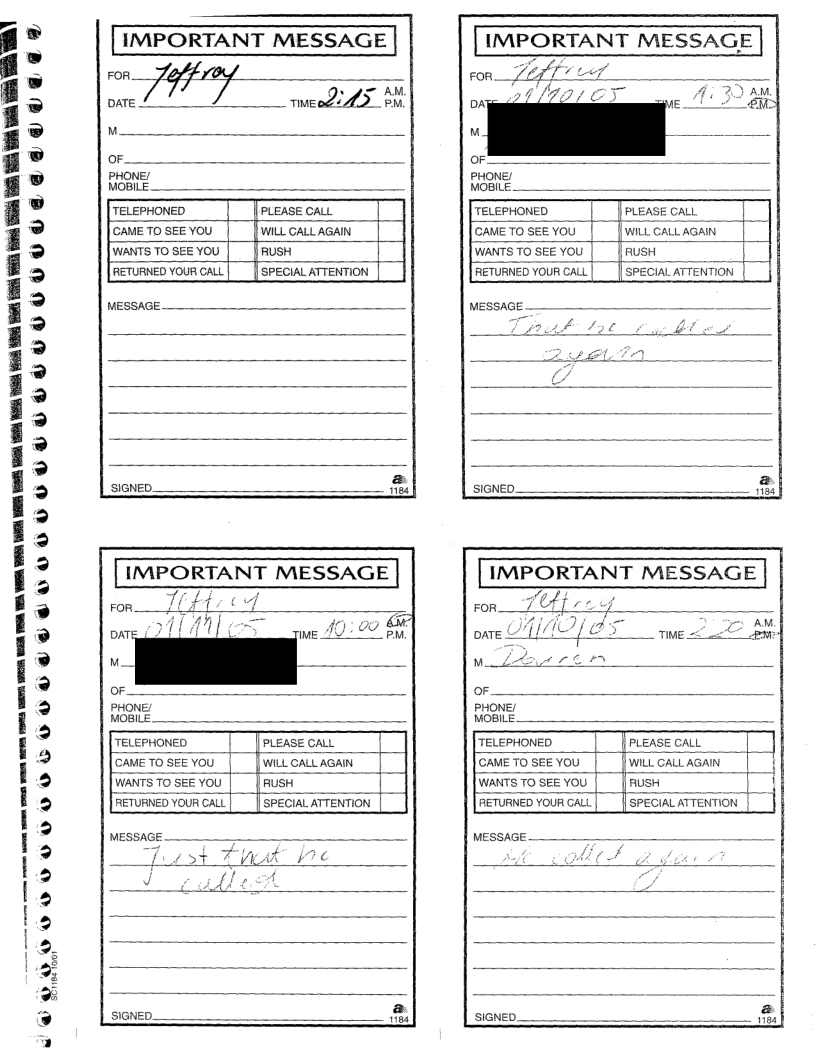 IMPORTANT MESSAGE
FOR Jeffrey
DATE TIME 2:15 A.M. P.M.
M
OF
PHONE/
MOBILE
TELEPHONED PLEASE CALL
CAME TO SEE YOU WILL CALL AGAIN
WANTS TO SEE YOU RUSH
RETURNED YOUR CALL SPECIAL ATTENTION
MESSAGE
SIGNED
1184
IMPORTANT MESSAGE
FOR Jeffrey
DATE 01/10/05 TIME 1:30 A.M. P.M.
M
OF
PHONE/
MOBILE
TELEPHONED PLEASE CALL
CAME TO SEE YOU WILL CALL AGAIN
WANTS TO SEE YOU RUSH
RETURNED YOUR CALL SPECIAL ATTENTION
MESSAGE
That he called
again
SIGNED
1184
IMPORTANT MESSAGE
FOR Jeffrey
DATE 01/11/05 TIME 10:00 A.M. P.M.
M
OF
PHONE/
MOBILE
TELEPHONED PLEASE CALL
CAME TO SEE YOU WILL CALL AGAIN
WANTS TO SEE YOU RUSH
RETURNED YOUR CALL SPECIAL ATTENTION
MESSAGE
Just that he
called
SIGNED
1184
IMPORTANT MESSAGE
FOR Jeffrey
DATE 01/10/05 TIME 2:20 A.M. P.M.
M Darren
OF
PHONE/
MOBILE
TELEPHONED PLEASE CALL
CAME TO SEE YOU WILL CALL AGAIN
WANTS TO SEE YOU RUSH
RETURNED YOUR CALL SPECIAL ATTENTION
MESSAGE
He called again
SIGNED
1184
SC1184 10/01